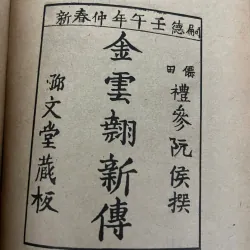 嗣德壬午年仲春新
僊田禮參阮侯撰
金雲翹新傳
文堂藏板